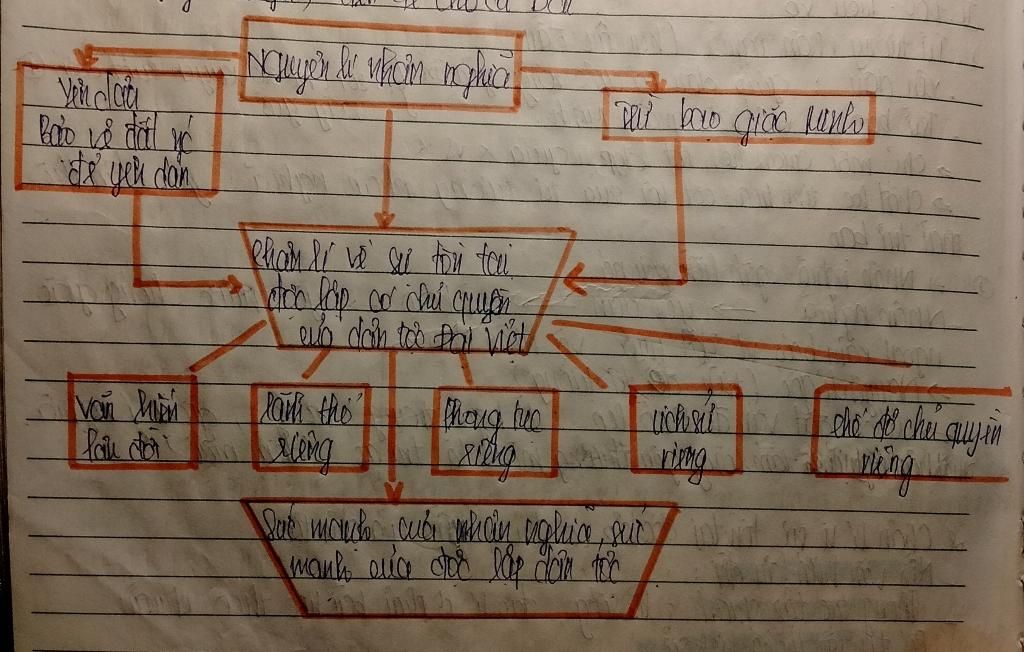 Nguyên lí nhân nghĩa
Yên dân
Bảo vệ đất nc
để yên dân
Trừ bạo giặc Minh
Chân lí về sự tồn tại
độc lập có chủ quyền
của dân tộc Đại Việt
Văn hiến
lâu đời
Lãnh thổ
riêng
Phong tục
riêng
Lịch sử
riêng
chế độ chủ quyền
riêng
Sức mạnh của nhân nghĩa, sức
mạnh của độc lập dân tộc